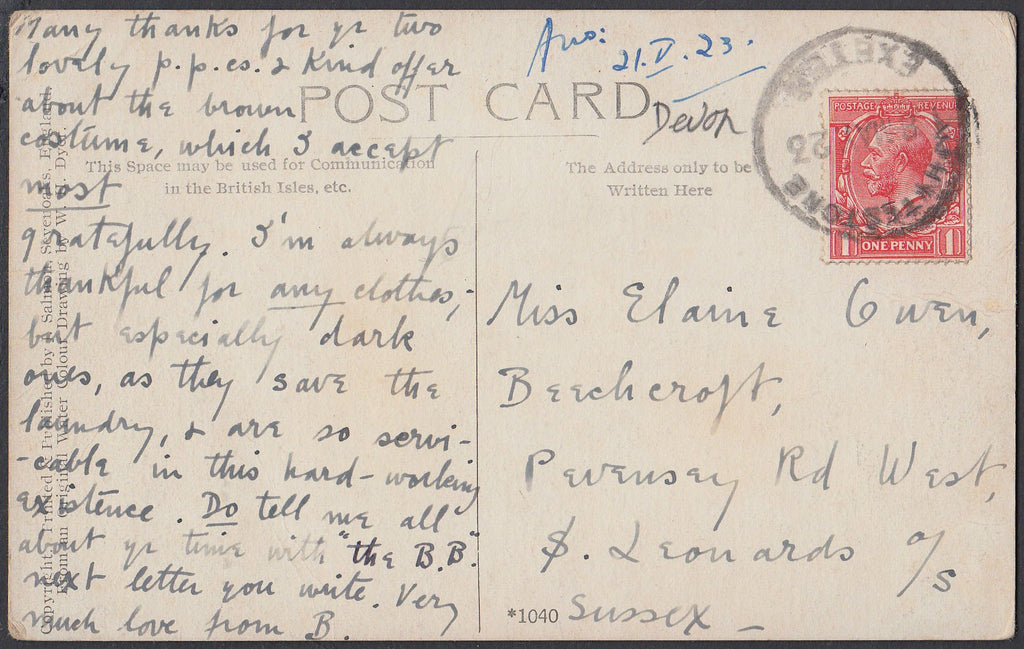 Many thanks for yr two
lovely p.p.cs. & kind offer
about the brown
costume, which I accept
most
gratefully. I'm always
thankful for any clothes,
but especially dark
ones, as they save the
laundry, & are so servi-
-cable in this hard-working
existence. Do tell me all
about yr time with "the B.B."
next letter you write. Very
much love from B.
Copyright. Printed & Published by J. Salmon, Sevenoaks, England.
From an Original Water Colour Drawing by W. H. Dyer.
POST CARD
This Space may be used for Communication
in the British Isles, etc.
The Address only to be
Written Here
Ans:
21.V.23.
Devon
EXETER
WHITESTONE
23
POSTAGE REVENUE
1 ONE PENNY 1
Miss Elaine Owen,
Beechcroft,
Pevensey Rd West,
S. Leonards o/s
Sussex
*1040